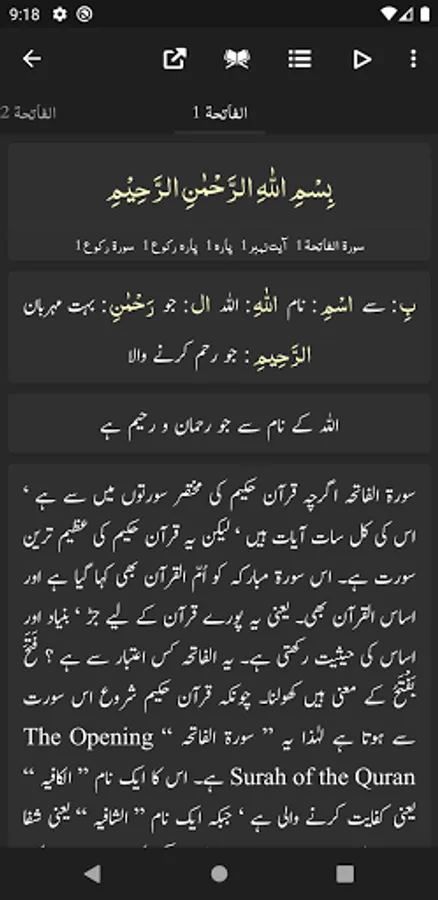 9:18
الفاتحة 1
الفاتحة 2
بِسْمِ اللهِ الرَّحْمٰنِ الرَّحِيْمِ
سورة الفاتحة 1 آیت نمبر 1 پارہ 1 پارہ رکوع 1 سورة رکوع 1
بِ: سے اسْمِ: نام اللهِ: اللہ ال: جو رَحْمٰنِ: بہت مہربان
الرَّحِيمِ: جو رحم کرنے والا
اللہ کے نام سے جو رحمان و رحیم ہے
سورۃ الفاتحہ اگرچہ قرآن حکیم کی مختصر سورتوں میں سے ہے ‘
اس کی کل سات آیات ہیں ‘ لیکن یہ قرآن حکیم کی عظیم ترین
سورت ہے۔ اس سورۃ مبارکہ کو اُمّ القرآن بھی کہا گیا ہے اور
اساس القرآن بھی۔ یعنی یہ پورے قرآن کے لیے جڑ ‘ بنیاد اور
اساس کی حیثیت رکھتی ہے۔ یہ الفاتحہ کس اعتبار سے ہے ؟ فَتَحَ
یَفْتَحُ کے معنی ہیں کھولنا۔ چونکہ قرآن حکیم شروع اس سورت
سے ہوتا ہے لہٰذا یہ ” سورۃ الفاتحہ “ The Opening
Surah of the Quran ہے۔ اس کا ایک نام ” الکافیہ “
یعنی کفایت کرنے والی ہے ‘ جبکہ ایک نام ” الشافیہ “ یعنی شفا